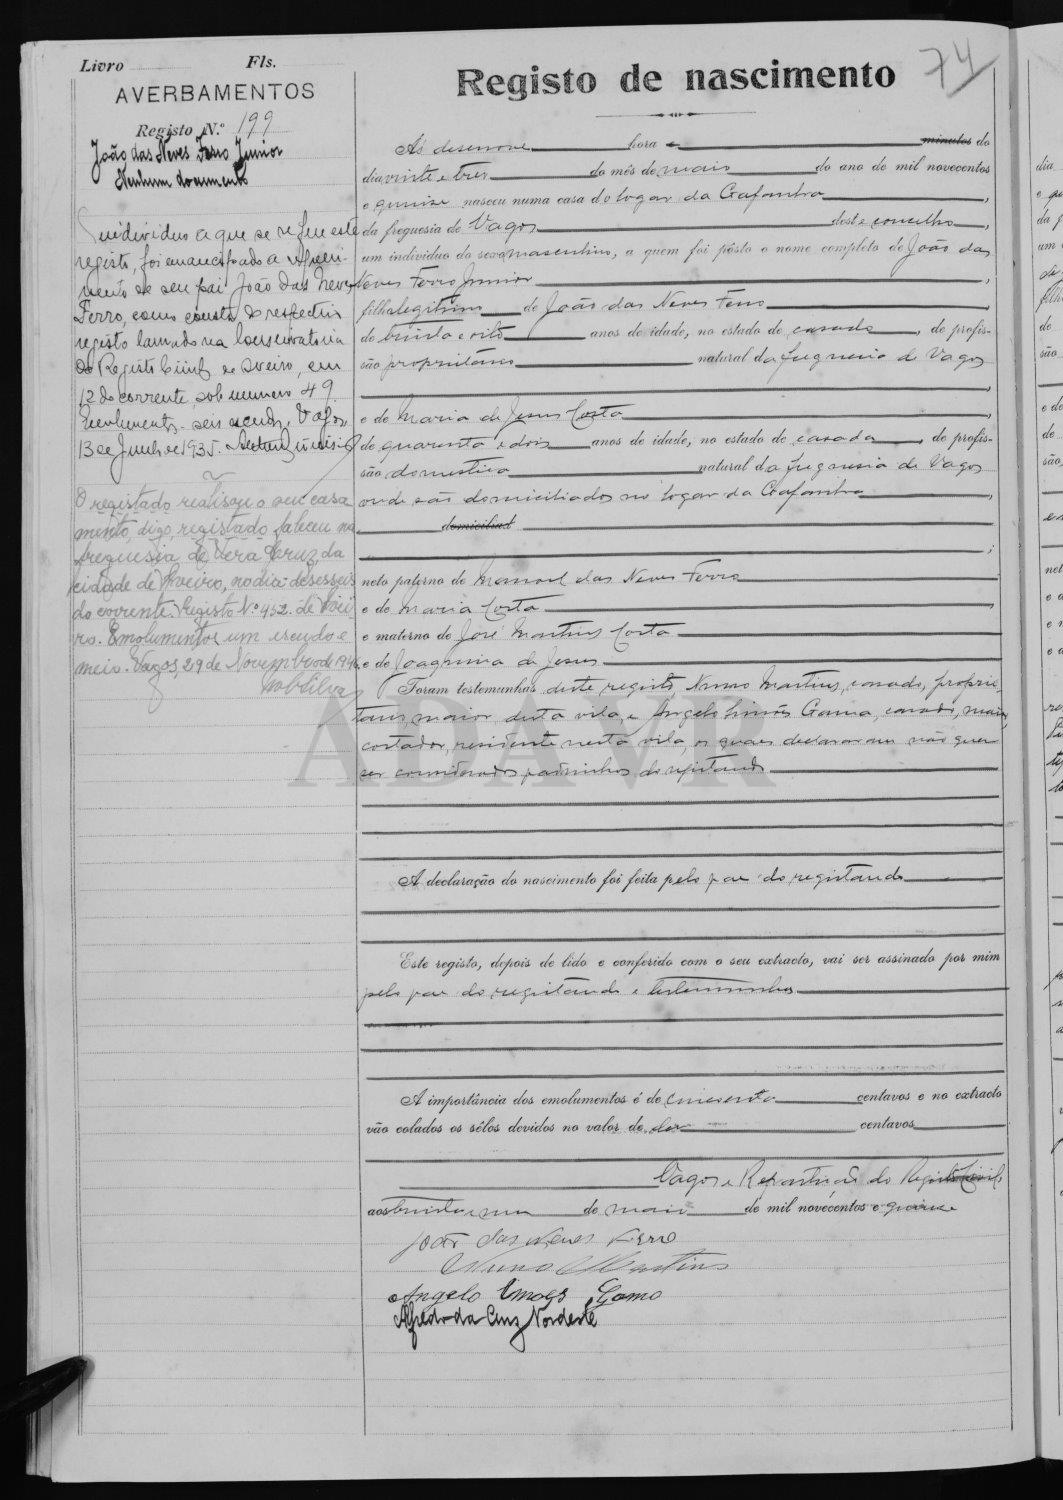 74
Livro Fls.
AVERBAMENTOS
Registo N.º 199
João das Neves Ferro Junior
Nenhum documento
O individuo a que se refere este
registo, foi emancipado a
de seu pai João das Neves
Ferro, como consta do respectivo
registo lavrado na Conservatoria
do Registo Civil de Aveiro, em
12 do corrente, sob numero 49.
Emolumentos seis escudos. Vagos,
13 de Junho de 1935.
O registado realisou o seu casa
mento, digo, registado faleceu na
freguesia de Vera Cruz, da
cidade de Aveiro, no dia desesseis
do corrente. Registo N.º 452 de Avei
ro. Emolumentos um escudo e
meio. Vagos, 29 de Novembro de 1946.
Registo de nascimento
Ás desenove hora e minutos do
dia vinte e tres do mês de maio do ano de mil novecentos
e quinse nasceu numa casa do logar da Gafanha,
da freguesia de Vagos deste concelho,
um individuo do sexo masculino, a quem foi pôsto o nome completo de João das
Neves Ferro Junior,
filho legitimo de João das Neves Ferro,
de trinta e oito anos de idade, no estado de casado, de profis-
são proprietario natural da freguesia de Vagos
,
e de Maria de Jesus Costa,
de quarenta e dois anos de idade, no estado de casada, de profis-
são domestica natural da freguesia de Vagos
onde são domiciliados no logar da Gafanha,
domiciliad
;
neto paterno de Manoel das Neves Ferro
e de Maria Costa,
e materno de José Martins Costa
e de Joaquina de Jesus
Foram testemunhas deste registo, Nuno Martins, casado, proprie-
tario, maior, desta vila, e Angelo Simões Gama, casado, maior,
cortador, residente nesta vila os quaes declararam não quer
ser considerados padrinhos do registando
ADAVR
A declaração do nascimento foi feita pelo pae do registando
Este registo, depois de lido e conferido com o seu extracto, vai ser assinado por mim
pelo pae do registando e testemunhas
A importância dos emolumentos é de cincoenta centavos e no extracto
vão colados os sêlos devidos no valor de dez centavos
Vagos e Repartição do Registo Civil,
aos trinta e um de maio de mil novecentos e quinse
João das Neves Ferro
Nuno Martins
Angelo Simoes Gama
Alfredo da Cruz Nordeste